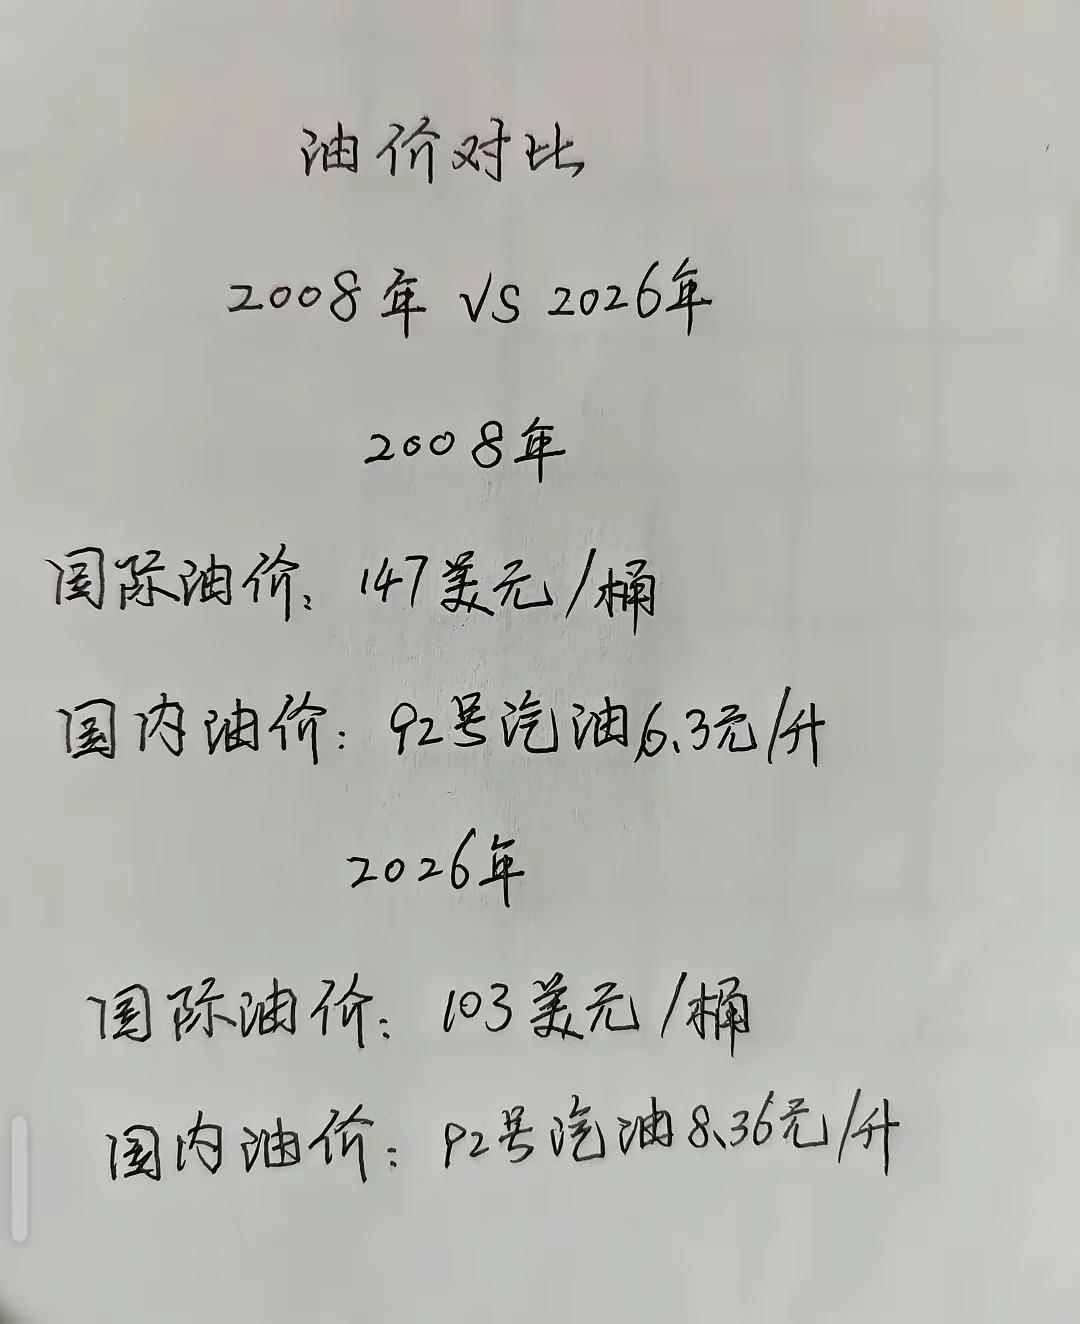 油价对比
2008年 VS 2026年
2008年
国际油价：147美元/桶
国内油价：92号汽油6.3元/升
2026年
国际油价：103美元/桶
国内油价：92号汽油8.36元/升